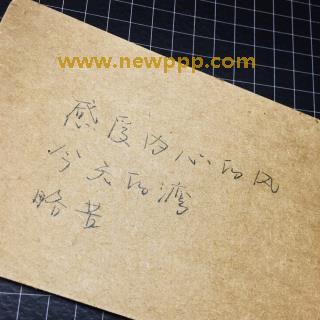 www.newppp.com
感受内心的风
今天的湾
略苦